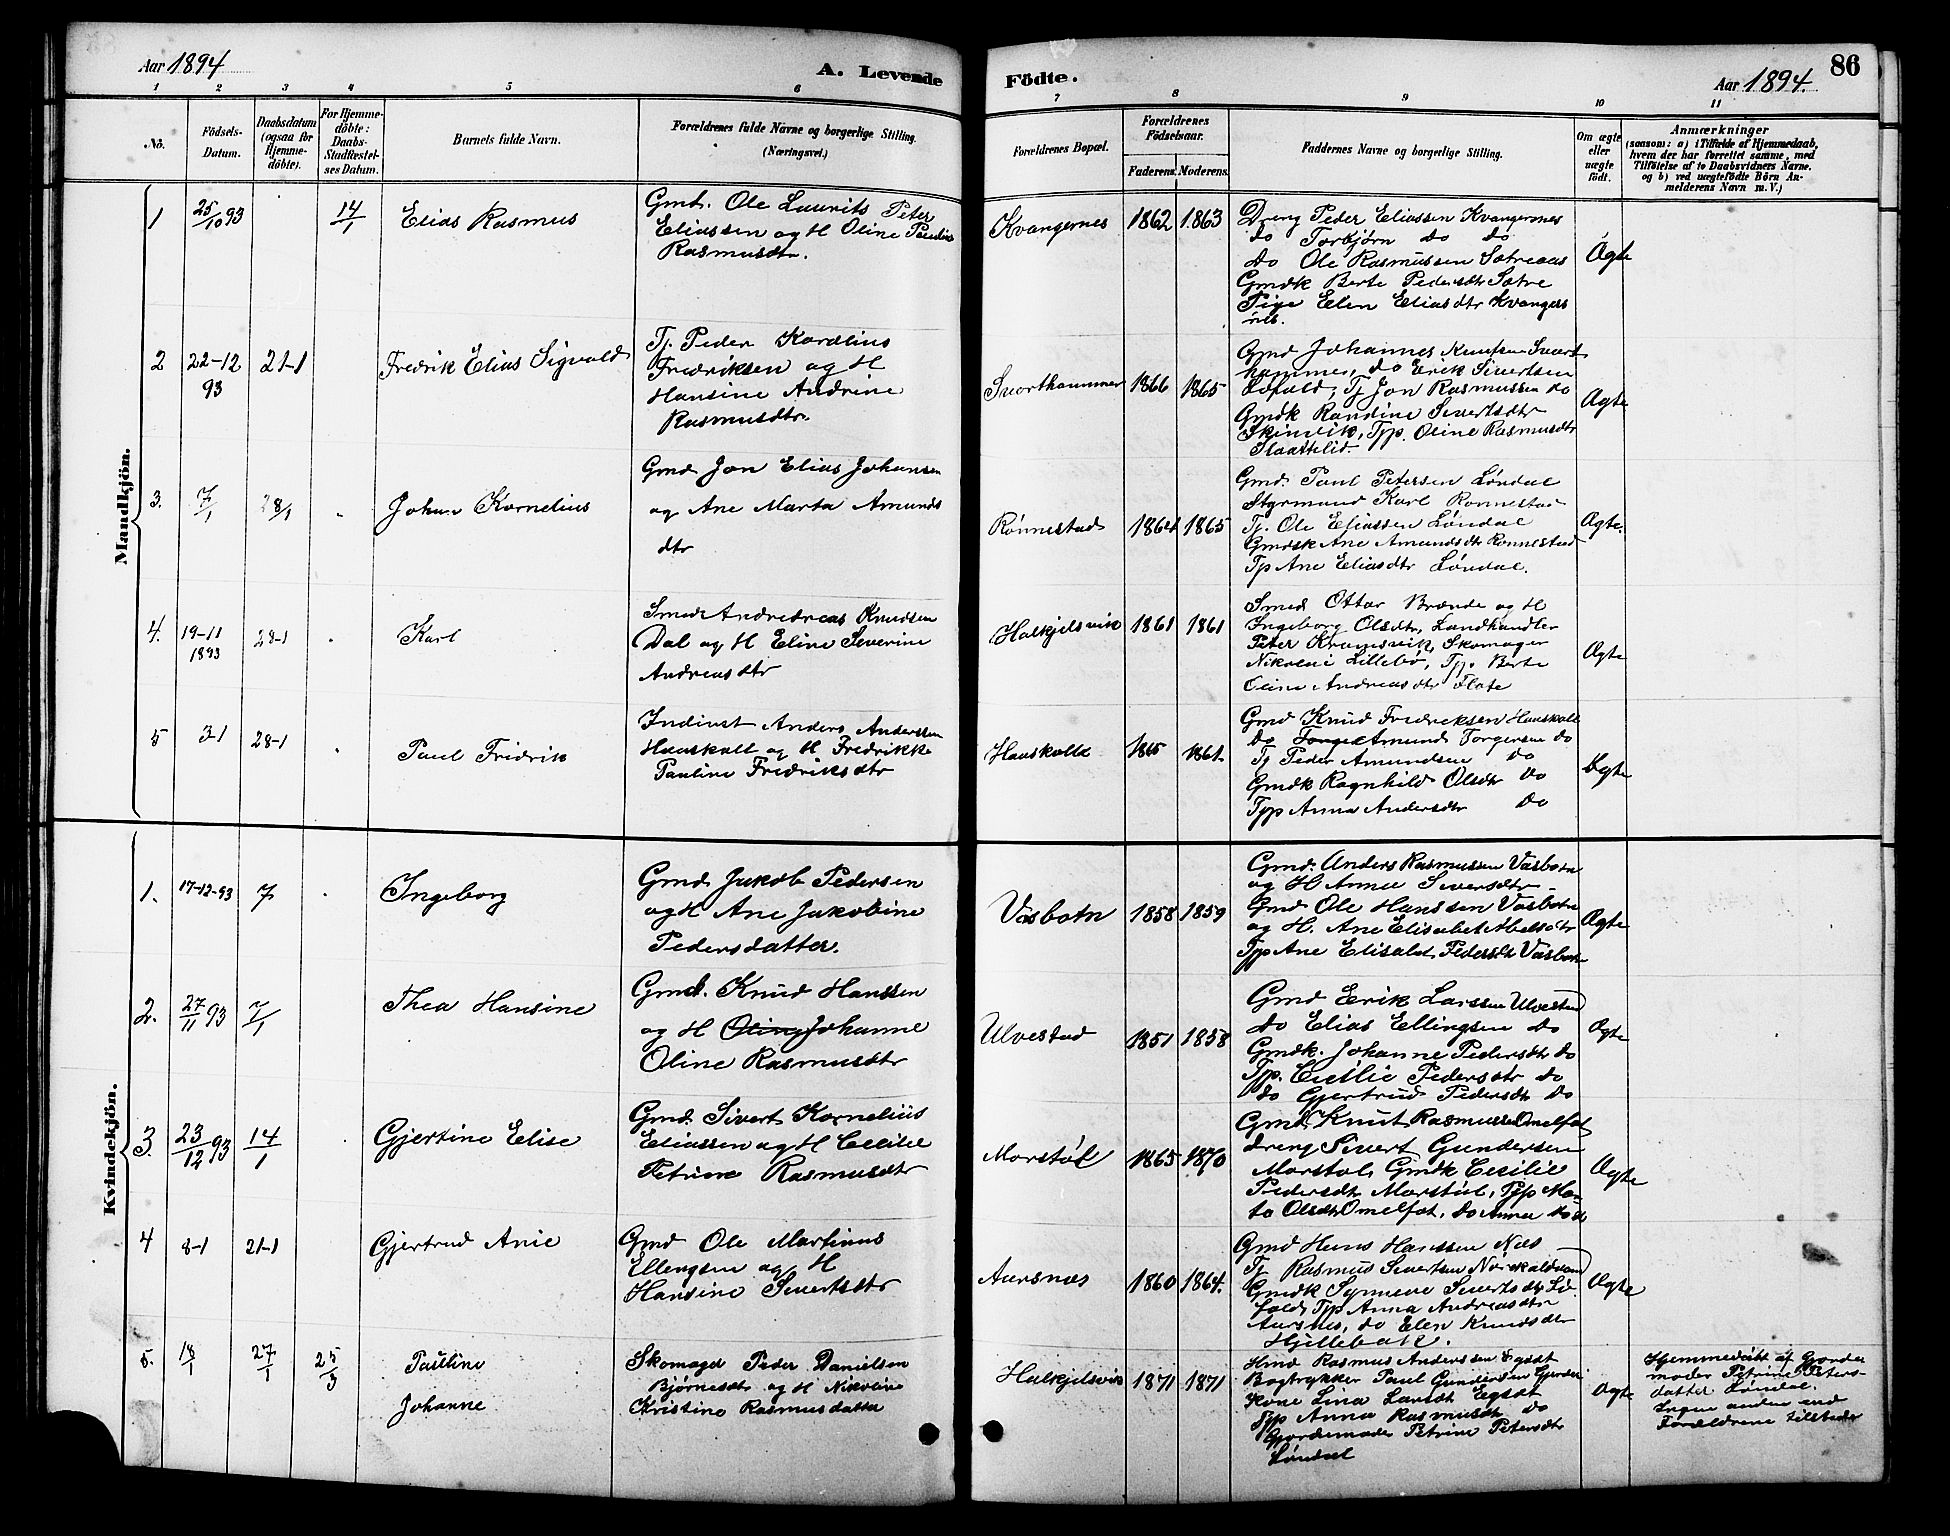 Aar 1894
A. Levende
Födte.
Aar 1894.
86
1 2 3 4 5 6 7 8 9 10 11
No.
Födsels-
Datum.
Daabsdatum
(ogsaa for
Hjemme-
döbte).
For Hjemme-
döbte:
Daabs-
Stadfæstel-
ses Datum.
Barnets fulde Navn.
Forældrenes fulde Navne og borgerlige Stilling.
(Næringsvei.)
Forældrenes Bopæl.
Forældrenes
Födselsaar.
Faderens. Moderens.
Faddernes Navne og borgerlige Stilling.
Om ægte
eller
uægte
født.
Anmærkninger
(saasom: a) i Tilfælde af Hjemmedaab,
hvem der har forrettet samme, med
Tilföielse af to Daabsvidners Navne.
og b) ved uægtefödte Börn An-
melderens Navn m.V.)
Mandkjön.
1
25/10 93
14/1
Elias Rasmus
Gmd. Ole Laurits Peter
Eliassen og H Oline Pauline
Rasmusdtr.
Kvangernes
1862
1863
Dreng Peder Eliassen Kvangersnes
do Torbjørn do do
do Ole Rasmussen Sætreaas
Gmdk Berte Pedersdtr Sætre
Pige Elen Eliasdtr Kvangers
nes.
Ægte
2
22-12
93
21-1
Fredrik Elias Sigvald
Tj. Peder Karolius
Fredriksen og H
Hansine Andrine
Rasmusdtr.
Svorthammer
1866
1865
Gmd Johannes Knutsen Svart
hammer, do Erik Sivertsen
Løfald, Tj Jon Rasmussen do
Gmdk Randine Sivertsdtr
Skinvik, Tpp. Oline Rasmusdtr
Slaattelid.
Ægte
3.
7/1
28/1
"
Johan Kornelius
Gmd Jon Elias Johansen
og Ane Marta Amunds
dtr
Rönnestad
1864
1865
Gmd Paul Petersen Løndal
Styrmand Karl Rønnestad
Tj. Ole Eliassen Løndal
Gmdsk Ane Amundsdtr Rønnestad
Tp Ane Eliasdtr Løndal.
Ægte.
4.
19-11
1893
28-1
"
Karl
Smed Andredreas Knudsen
Dal og H Eline Severine
Andreasdtr
Halkjelsvik
1861
1861
Smed Ottar Brænde og H
Ingeborg Olsdtr, Landhandler
Peter Kramsvik, Skomager
Lillebø, Tp. Berte
Oline Andreasdtr Flote
Ægte
5
3-1
28-1
"
Paul Fridrik
Indiust Anders Anderssen
Hauskoll og H Fredrikke
Pauline Fredriksdtr
Hauskolle
1865
1861
Gmd Knud Fredreksen Hauskoll
do Amund Torgersen do
Tj Peder Amundsen do
Gmdk Ragnhild Olsdtr do
Tpp Anna Andersdtr do
Ægte
Kvindekjön.
1.
17-12-93
7
"
Ingeborg
Gmd Jakob Pedersen
og H Ane Jakobine
Pedersdatter.
Vasbotn
1858
1859
Gmd. Anders Rasmussen Vasbotn
og H Anna Siversdtr-
Gmd Ole Hanssen Vasbotn
og H. Ane Elisabet Abelsdtr
Tpp Ane Elisabet Pedersdtr Vasbotn
Ægte
2.
27/11 93
7/1
Thea Hansine
Gmd. Knud Hanssen
og H Johanne
Oline Rasmusdtr
Ulvestad
1851
1858
Gmd Erik Larssen Ulvestad
do Elias Ellingsen do
Gmdk. Johanne Pedersdtr do
Tpp. Cecilie Pedersdtr do
do Gjertrud Pedersdtr do
Ægte
3.
23/12 93
14/1
Gjertine Elise
Gmd. Sivert Kornelius
Eliassen og H Cecilie
Petrine Rasmusdtr
Morstøl
1865
1870
Gmd Knut Rasmussen Omelfot
Dreng Sivert Gundersen
Morstøl, Gmdk Cecilie
Pedersdtr Morstøl, Tpp Mar
ta Olsdtr Omelfot, do Anna do do
Ægte
4
8-1
21-1
Gjertrud Anie
Gmd Ole Martinus
Ellengsen og H
Hansine Sivertsdtr
Aursnæs
1860
1864.
Gmd Hans Hanssen Næs
Tj Rasmus Sivertsen
Gmdk Synneve Sivertsdtr Lø-
fald, Tpp Anna Andreasdtr
Aursnes, do Elen Knudsdtr
Hjellebakk.
Ægte
5.
18/1
27/1
25/3
Pauline
Johanne
Skomager Peder Danielsen
Bjørnesdtr og H Nikoline
Kristine Rasmusdatter
Halkjelsvik
1871
1871
Gmd Rasmus Anderssen Egset
Bogtrykker Paul Gundersen
Kone Lina Egsdt
Tpp Anna Rasmusdtr do
Gjordemoder Petrine Petersdtr
Løndal
Ægte
Hjemmedøbt af Gjorde
moder Petrine Peters-
datter Løndal.
Ingen anden end
Forældrene tilstede